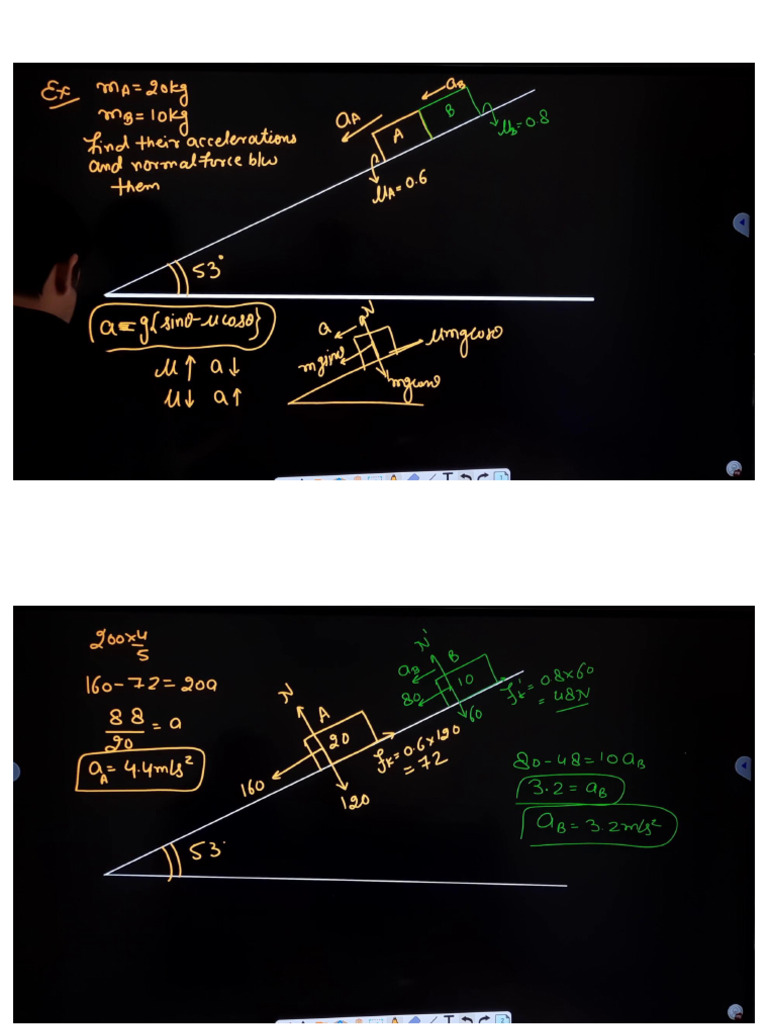 Ex
mA = 20kg
mB = 10kg
find their accelerations
and normal force b/w
them
aA
aB
A
B
μB = 0.8
μA = 0.6
53°
a = g{sinθ - μcosθ}
μ↑ a↓
μ↓ a↑
a
N
mgsinθ
μmgcosθ
mgcosθ
200×4/5
160-72 = 20a
88/20 = a
aA = 4.4m/s²
N
A
20
160
120
fk = 0.6×120
= 72
N'
B
aB
10
80
60
fk' = 0.8×60
= 48N
80-48 = 10aB
3.2 = aB
aB = 3.2m/s²
53°